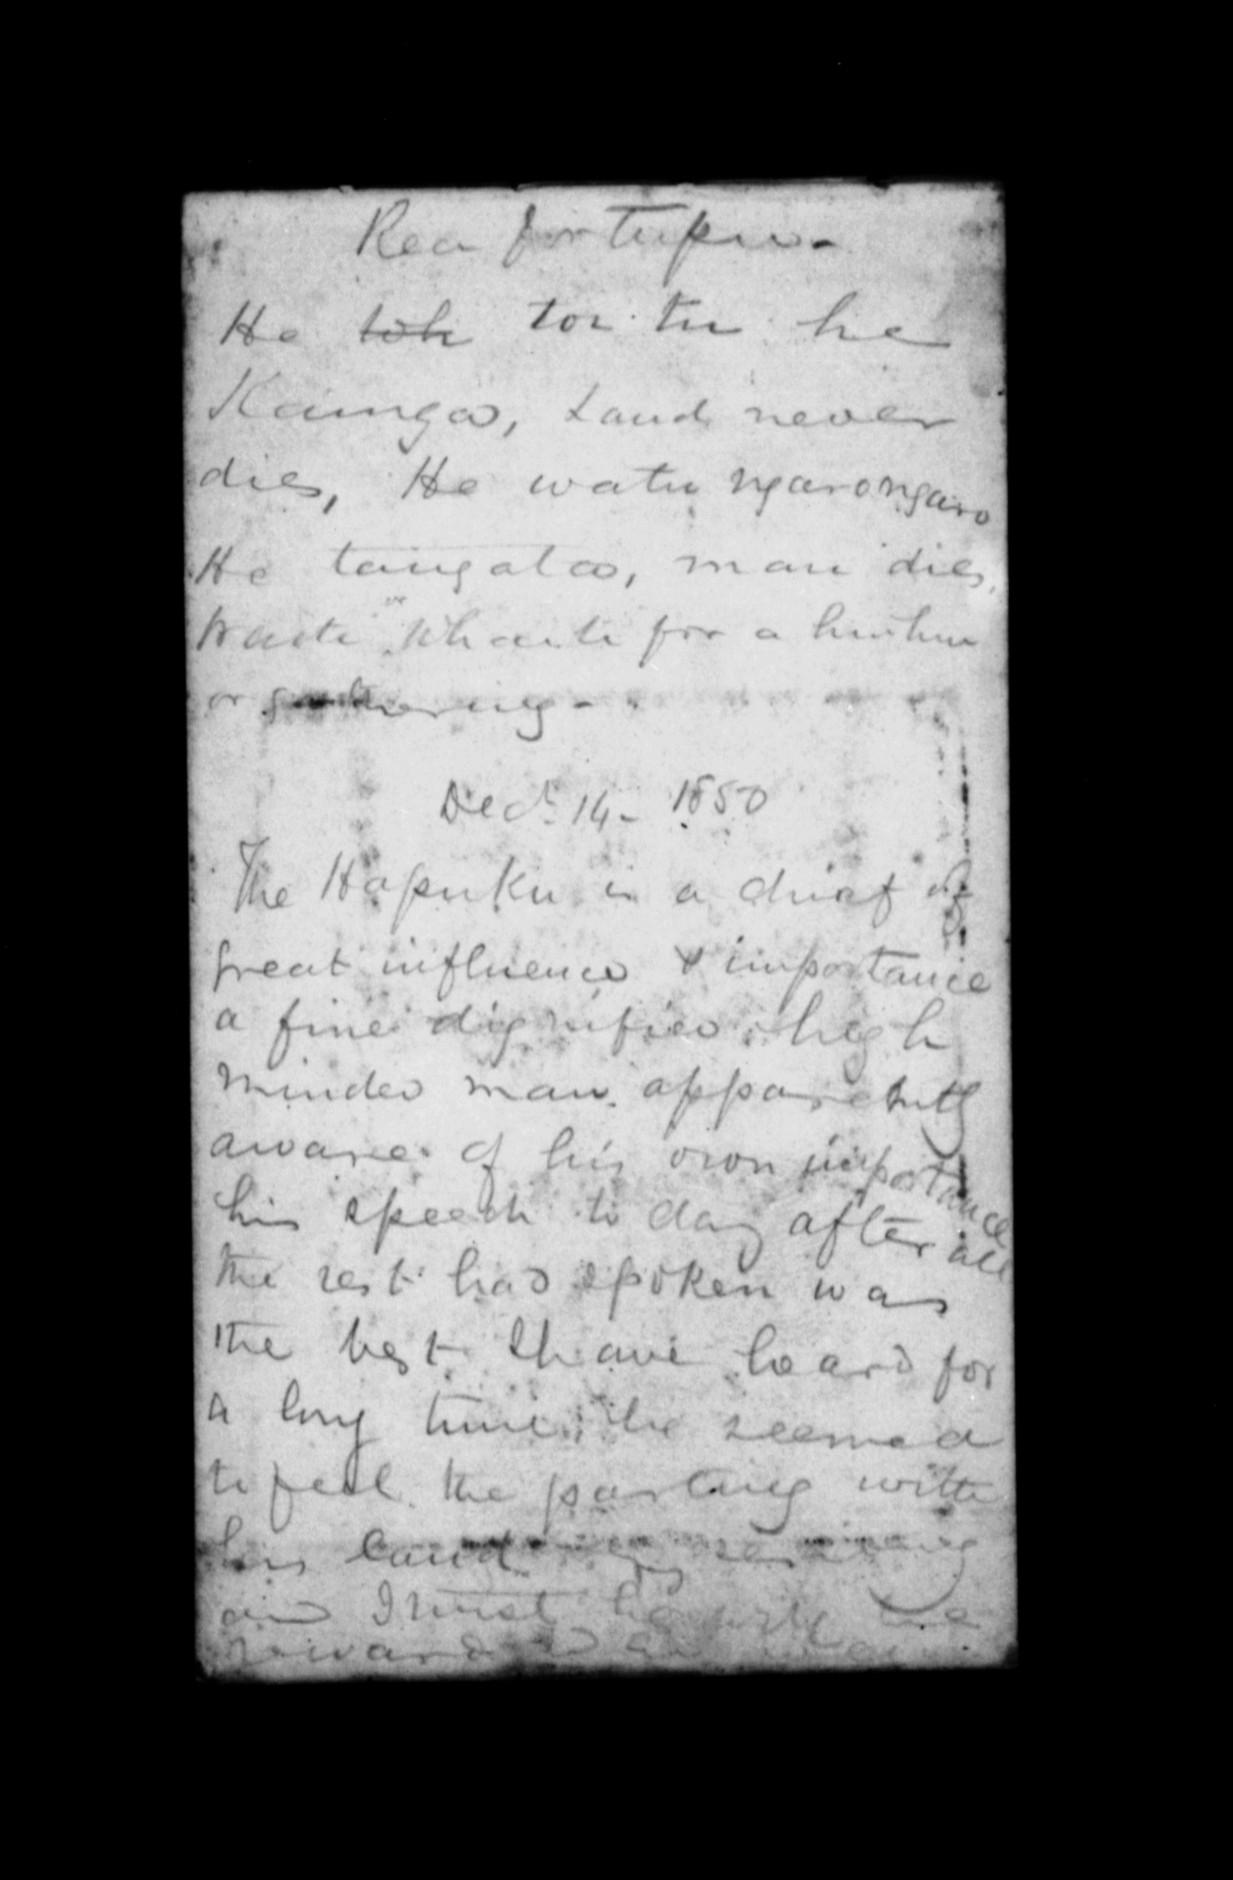 Rea for tupu -
He toh toi tu he
Kainga, Land never
dies, He watu ngarongaro
He tangata, man dies,
Waste Whaite for a huihui
or gathering -
Decr 14 - 1850
The Hapuku is a chief of
great influence & importance
a fine dignified high
minded man apparently
aware of his own importance
his speech to day after all
the rest had spoken was
the best I have heard for
a long time; he seemed
to feel the parting with
his land very
and I must
reward